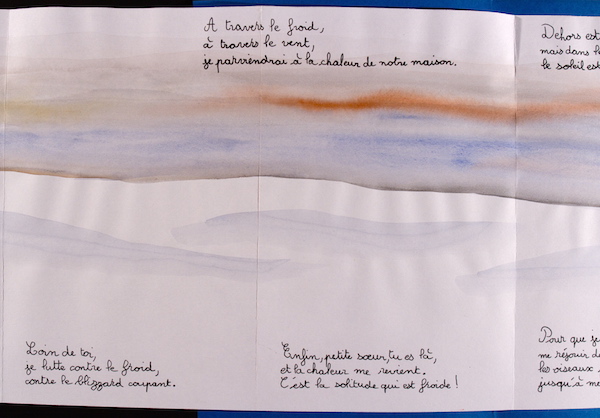 A travers le froid,
à travers le vent,
je parviendrai à la chaleur de notre maison.
Dehors est
mais dans
le soleil est
Loin de toi,
je lutte contre le froid,
contre le blizzard coupant.
Enfin, petite sœur, tu es là,
et la chaleur me revient.
C'est la solitude qui est froide !
Pour que je
me réjouir
les oiseaux
jusqu'à me